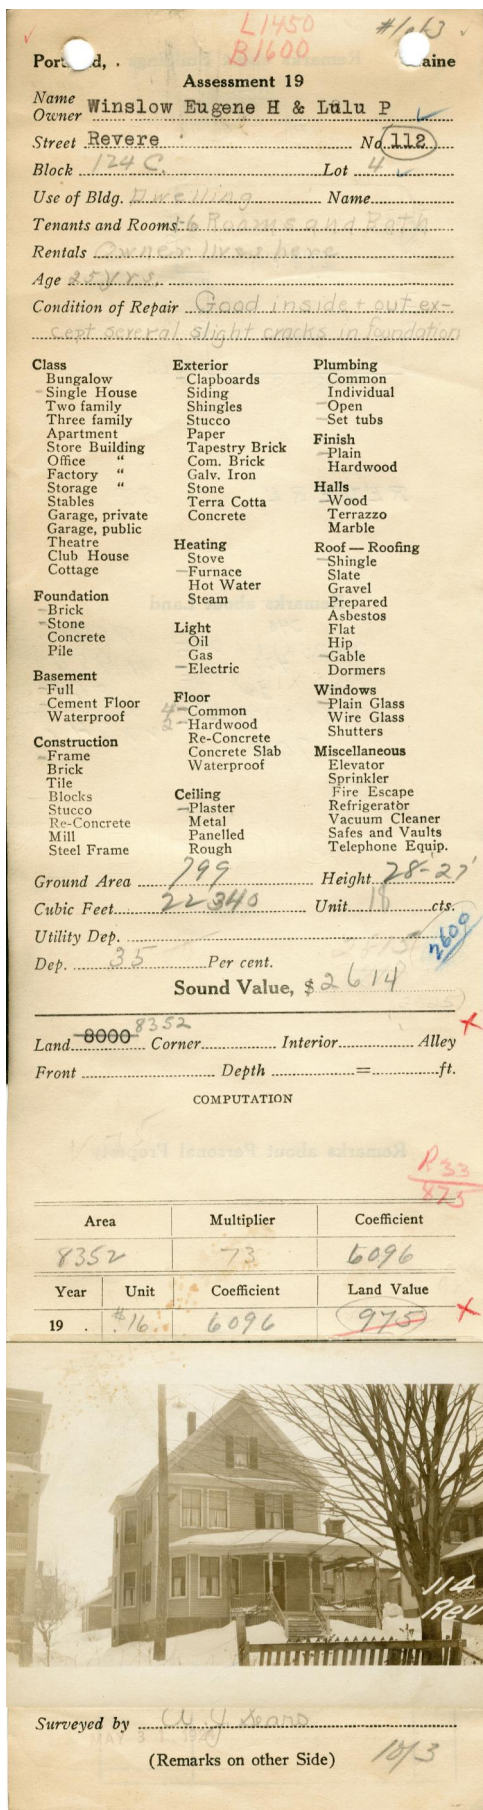 L1450
#1of3
B1600
Portland, . Maine
Assessment 19
Name
Owner Winslow Eugene H & Lulu P
Street Revere No. 112
Block 124 C. Lot 4
Use of Bldg. Dwelling Name
Tenants and Rooms 6 Rooms and Bath
Rentals Owner lives here
Age 25 yrs.
Condition of Repair Good inside + out ex-
cept several slight cracks in foundation
Class
Bungalow
Single House
Two family
Three family
Apartment
Store Building
Office "
Factory "
Storage "
Stables
Garage, private
Garage, public
Theatre
Club House
Cottage
Foundation
Brick
Stone
Concrete
Pile
Basement
Full
Cement Floor
Waterproof
Construction
Frame
Brick
Tile
Blocks
Stucco
Re-Concrete
Mill
Steel Frame
Exterior
Clapboards
Siding
Shingles
Stucco
Paper
Tapestry Brick
Com. Brick
Galv. Iron
Stone
Terra Cotta
Concrete
Heating
Stove
Furnace
Hot Water
Steam
Light
Oil
Gas
Electric
Floor
4 Common
2 Hardwood
Re-Concrete
Concrete Slab
Waterproof
Ceiling
Plaster
Metal
Panelled
Rough
Plumbing
Common
Individual
Open
Set tubs
Finish
Plain
Hardwood
Halls
Wood
Terrazzo
Marble
Roof — Roofing
Shingle
Slate
Gravel
Prepared
Asbestos
Flat
Hip
Gable
Dormers
Windows
Plain Glass
Wire Glass
Shutters
Miscellaneous
Elevator
Sprinkler
Fire Escape
Refrigerator
Vacuum Cleaner
Safes and Vaults
Telephone Equip.
Ground Area 799 Height 28'-27'
Cubic Feet 22340 Unit 18 cts.
Utility Dep.
2600
Dep. 35 Per cent.
Sound Value, $ 2614
Land 8000 8352 Corner Interior Alley
Front Depth = ft.
COMPUTATION
R33
875
Area Multiplier Coefficient
8352 73 6096
Year Unit Coefficient Land Value
19 . $.16 6096 975
114
Rev
Surveyed by
(Remarks on other Side) 1of3